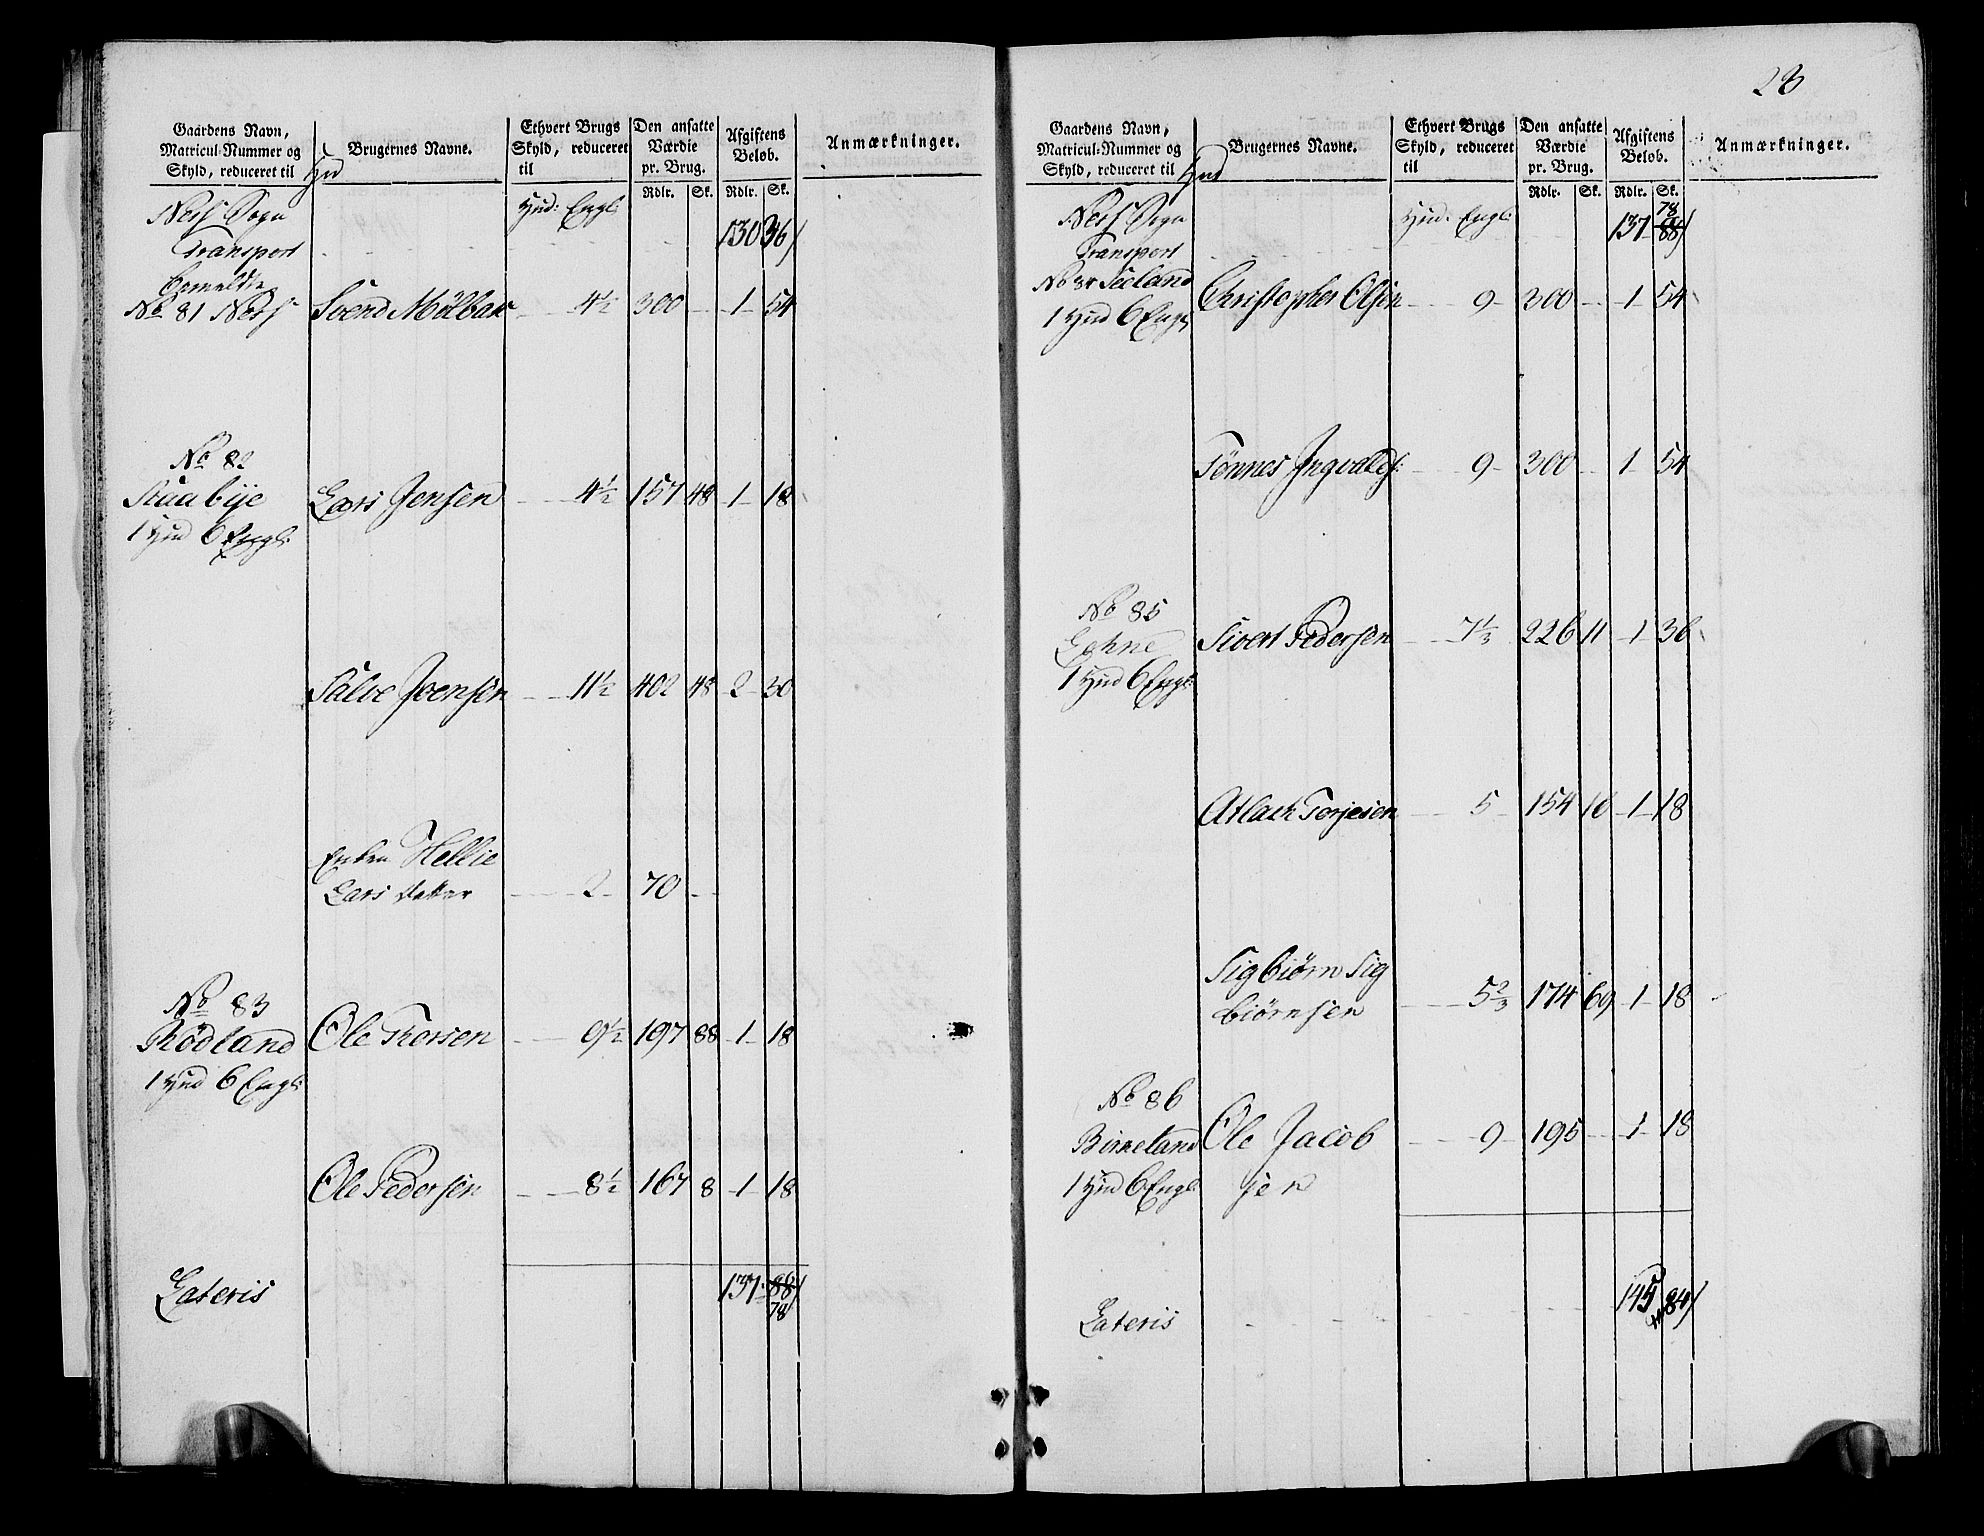 Gaardens Navn, Matricul-Nummer og Skyld, reduceret til Hud
Brugernes Navne.
Ethvert Brugs Skyld, reduceret til
Den ansatte Værdie pr. Brug.
Afgiftens Beløb.
Anmærkninger.
Rdlr. Sk. Rdlr. Sk.
Ness Sogn Hud: Engl:
Transport 130 36
No 81 Ness Svend Mølbak 4½ 300 - 1 54
No 82
Staabije Lars Jensen 4½ 157 48 1 18
1 Hud 6 Engl:
Salve Joensen 11½ 402 48 2 30
Enken Hellie
Lars datter 2 70 -
No 83
Rødland Ole Thorsen 9½ 197 88 1 18
1 Hud 6 Engl:
Ole Pedersen 8½ 167 8 1 18
Lateris 137 88
78
23
Gaardens Navn, Matricul-Nummer og Skyld, reduceret til Hud
Brugernes Navne.
Ethvert Brugs Skyld, reduceret til
Den ansatte Værdie pr. Brug.
Afgiftens Beløb.
Anmærkninger.
Rdlr. Sk. Rdlr. Sk.
Ness Sogn Hud: Engl: 78
Transport 137 88
No 84 Seeland Christopher Olsen 9 300 - 1 54
1 Hud 6 Engl:
Tønnes Ingvalds: 9 300 - 1 54
No 85
Sivert Pedersen 7⅓ 226 11 1 36
1 Hud 6 Engl:
Atlach Torjesen 5 154 16 1 18
Sigbiørn Sig
biørnsen 5⅔ 174 69 1 18
No 86
Birkeland Ole Jacob 9 195 - 1 18
1 Hud 6 Engl: sen
Lateris 145 84